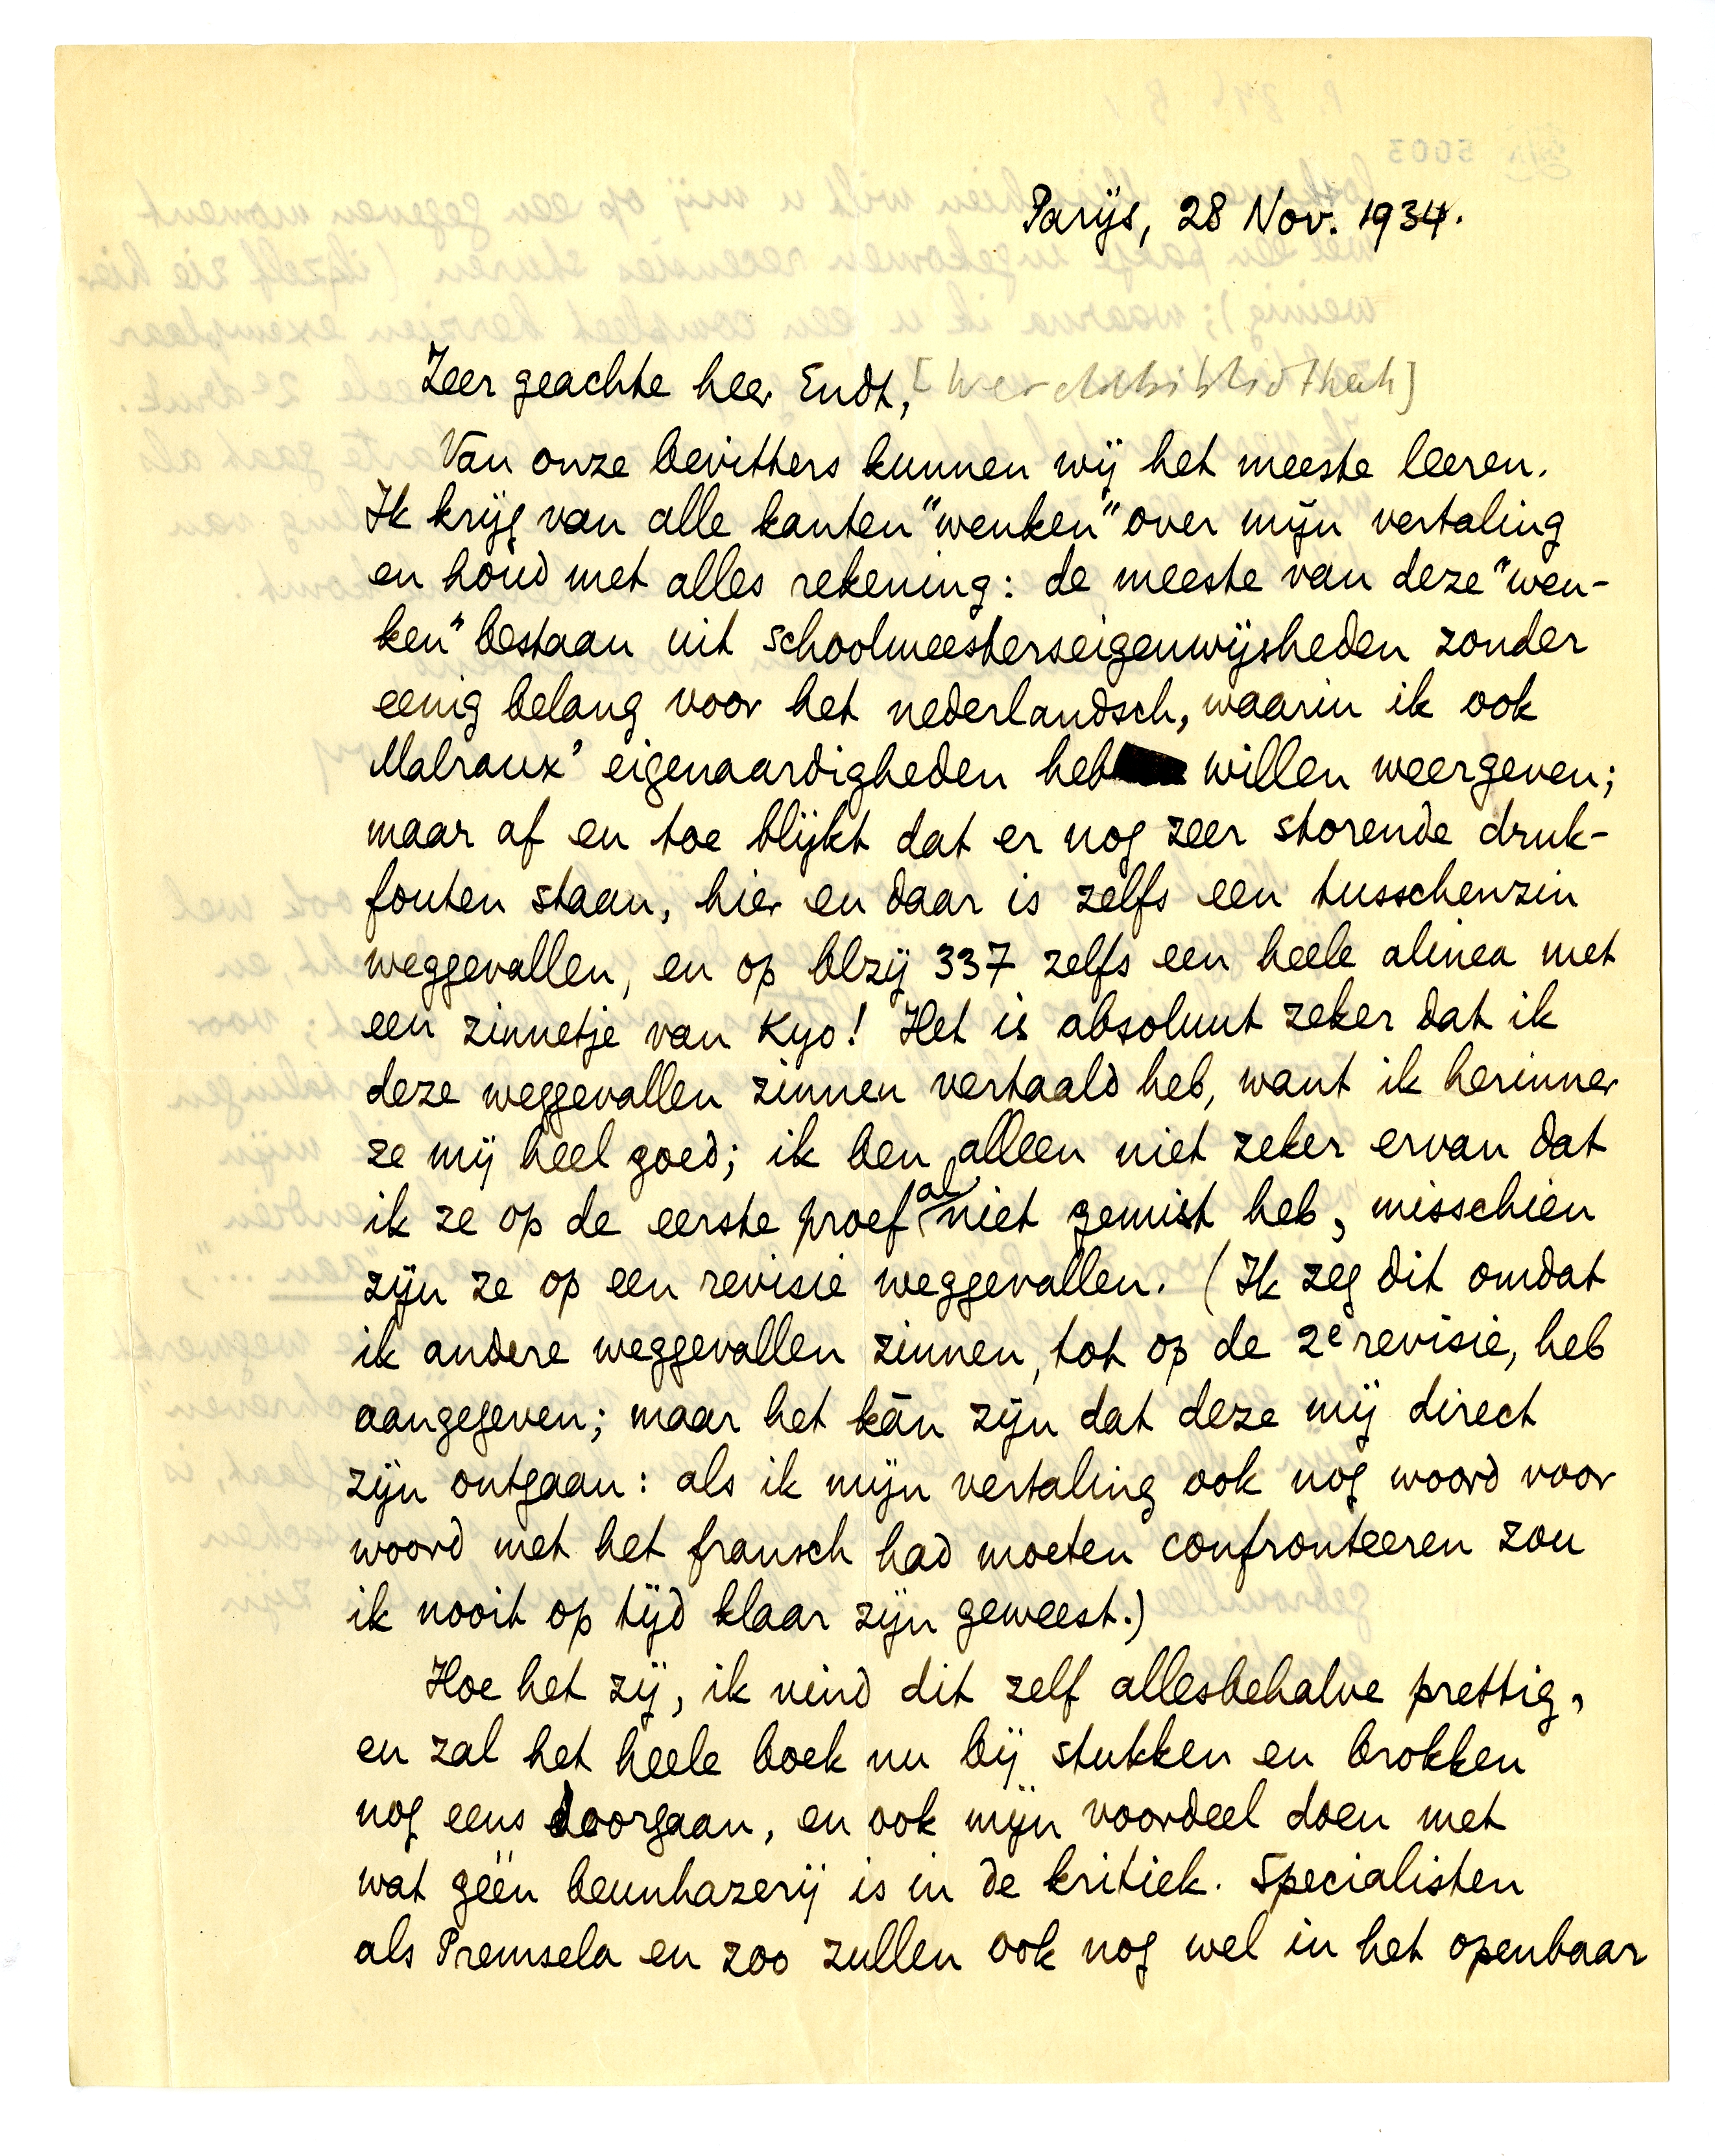 Parijs, 28 Nov. 1934.
Zeer geachte heer Endt, [Wereldbibliotheek]
Van onze bevitters kunnen wij het meeste leeren.
Ik krijg van alle kanten "wenken" over mijn vertaling
en houd met alles rekening: de meeste van deze "wen-
ken" bestaan uit schoolmeesterseigenwijsheden zonder
eenig belang voor het nederlandsch, waarin ik ook
Malraux' eigenaardigheden heb willen weergeven;
maar af en toe blijkt dat er nog zeer storende druk-
fouten staan, hier en daar is zelfs een tusschenzin
weggevallen, en op blzij 337 zelfs een heele alinea met
een zinnetje van Kyo! Het is absoluut zeker dat ik
deze weggevallen zinnen vertaald heb, want ik herinner
ze mij heel goed; ik ben alleen niet zeker ervan dat
ik ze op de eerste proef al niet gemist heb, misschien
zijn ze op een revisie weggevallen. (Ik zeg dit omdat
ik andere weggevallen zinnen, tot op de 2e revisie, heb
aangegeven; maar het kán zijn dat deze mij direct
zijn ontgaan: als ik mijn vertaling ook nog woord voor
woord met het fransch had moeten confronteeren zou
ik nooit op tijd klaar zijn geweest.)
Hoe het zij, ik vind dit zelf allesbehalve prettig,
en zal het heele boek nu bij stukken en brokken
nog eens doorgaan, en ook mijn voordeel doen met
wat géén beunhazerij is in de kritiek. Specialisten
als Premsela en zoo zullen ook nog wel in het openbaar